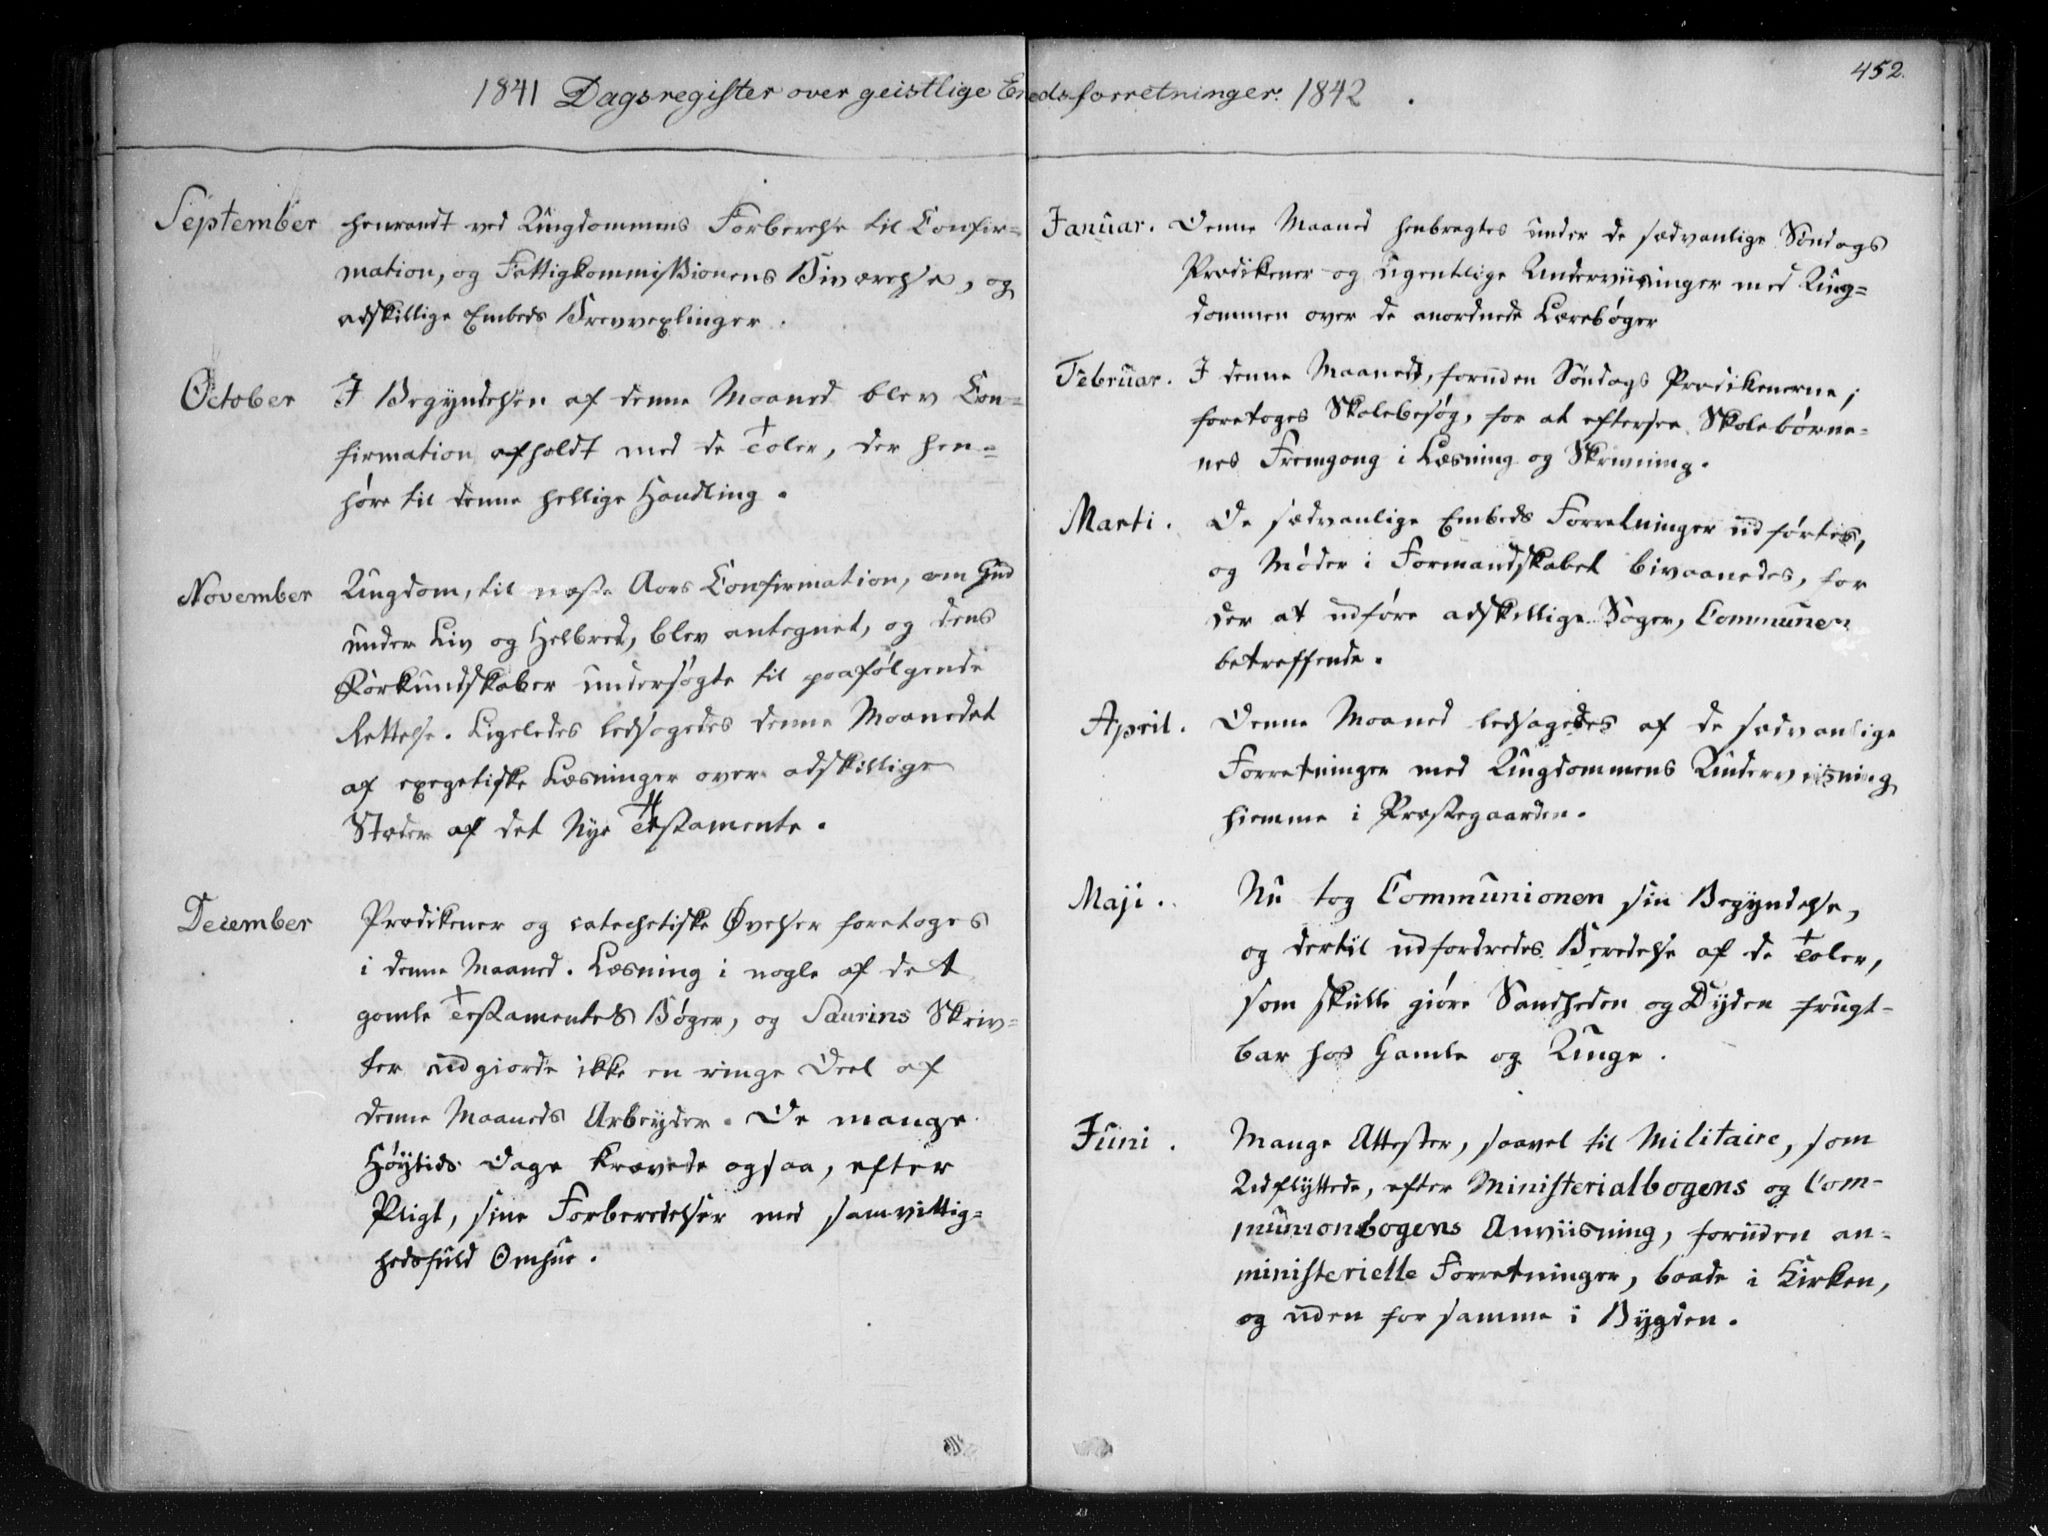 452.
1841 Dagsregister over geistlige Em edsforretninger. 1842.
September henrandt ved Ungdommens Forberelse til Confir=
mation, og Fattigkommissionens Biværelse, og
adskillige Embeds Brevvexlinger.
October I Begyndelsen af denne Maaned blev Con=
firmation afholdt med de Taler, der hen=
høre til denne hellige Handling.
November Ungdom, til næste Aars Confirmation, om Gud
under Liv og Helbred, blev antegnet, og dens
Forkundskaber undersøgte til paafølgende
Rettelse. Ligeledes ledsagedes denne Maanedet
af exegetiske Læsninger over adskillige
Stæder af det Nye Testamente.
December Prædikener og catechetiske Øvelser foretoges
i denne Maaned. Læsning i nogle af det
gamle Testamentes Bøger, og Saurins Skriv=
ter udgiorde ikke en ringe Deel af
denne Maaneds Arbeyder. De mange
Høytids Dage krævede ogsaa, efter
Pligt, sine Forberedelser med samvittig=
hedsfuld Omhue.
Januar. Denne Maaned henbragtes under de sædvanlige Søndags
Prædikener og Ugentlige Underviisninger med Ung=
dommen over de anordnede Lærebøger
Februar. I denne Maaned, foruden Søndags Prædikenerne,
foretoges Skolebesøg, for at eftersee Skolebørne=
nes Fremgang i Læsning og Skrivning.
Marti. De sædvanlige Embeds Forretninger udførtes,
og Møder i Formandskabet bivaanedes, for
der at udføre adskillige Sager, Communen
betreffende.
April. Denne Maaned ledsagedes af de sædvanlige
Forretninger med Ungdommens Underviisning
hiemme i Præstegaarden.
Maji. Nu tog Communionen sin Begyndelse,
og dertil udfordredes Beredelse af de Taler,
som skulle giøre Sandheden og Dyden frugt-
bar hos Gamle og Unge.
Juni. Mange Attester, saavel til Militaire, som
Udflyttede, efter Ministerialbogens og Com-
munionsbogens Anviisning, foruden an=
ministerielle Forretninger, baade i Kirken,
og uden for samme i Bygden.